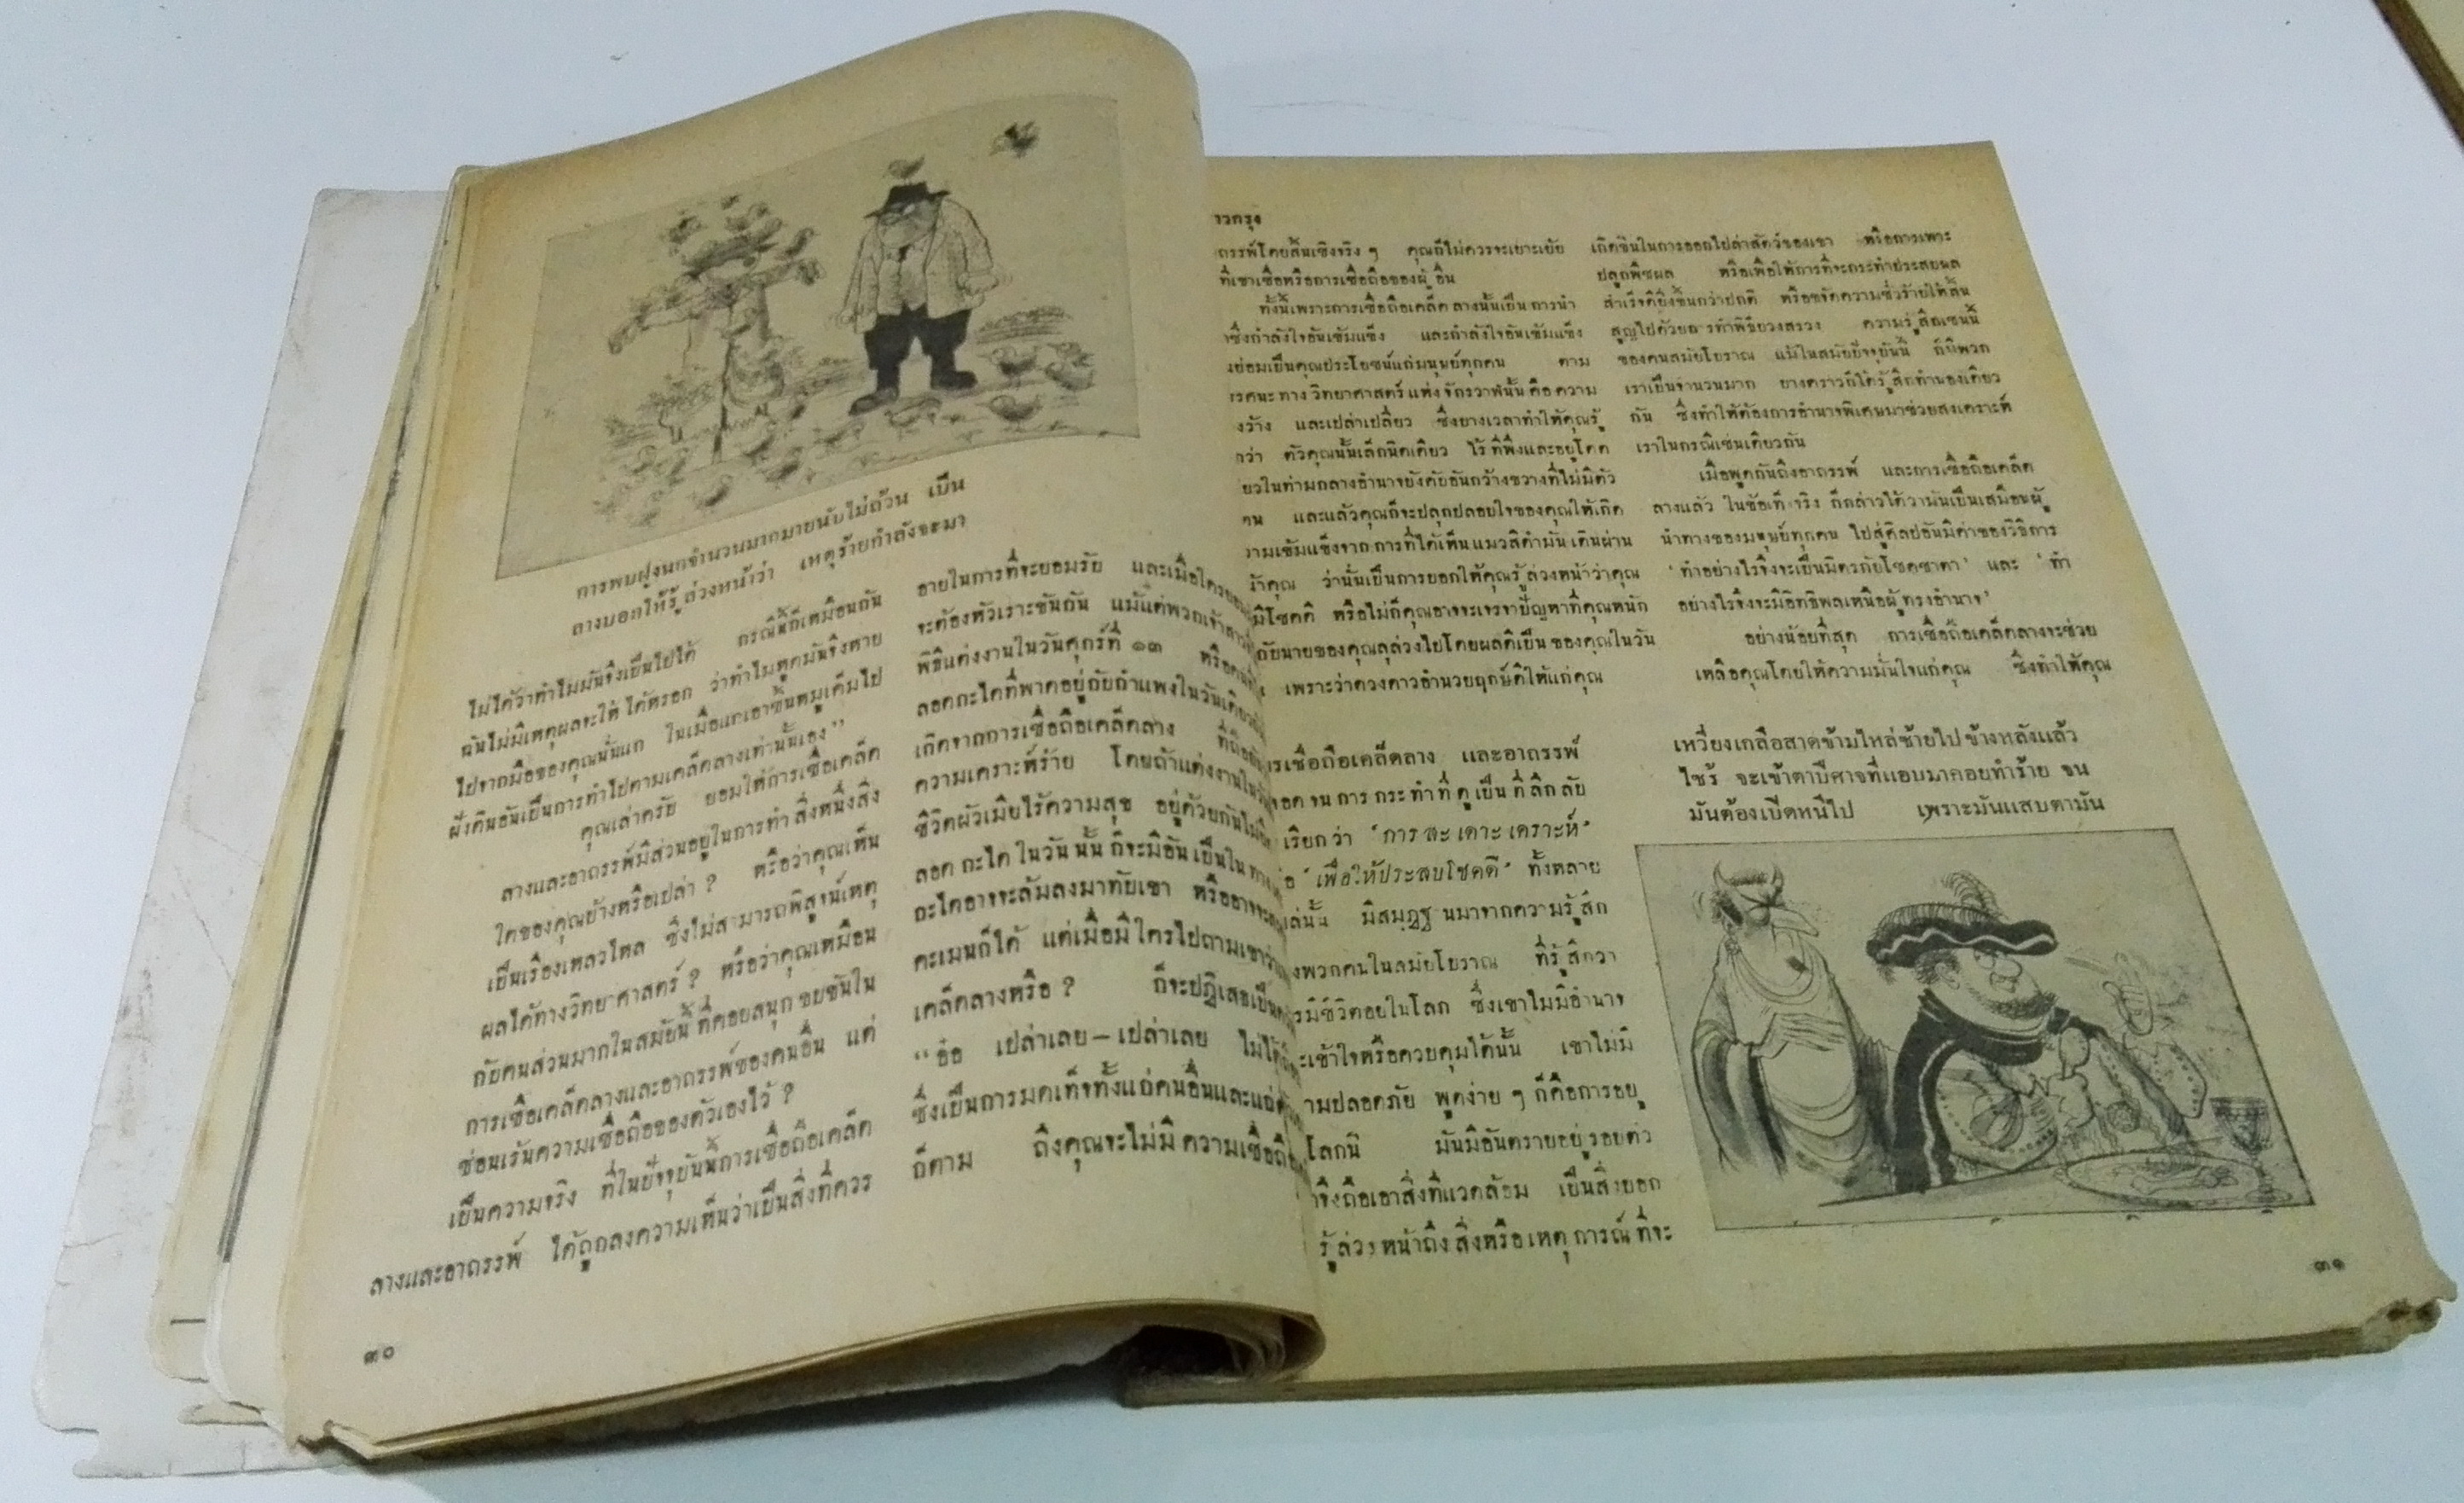 การพบฝูงนกจำนวนมากมายนับไม่ถ้วน เป็น
ลางบอกให้รู้ล่วงหน้าว่า เหตุร้ายกำลังจะมา
ไม่ได้ว่าทำไมมันจึงเป็นไปได้ กรณีนี้ก็เหมือนกัน
ฉันไม่มีเหตุผลจะให้ได้หรอก ว่าทำไมหูดมันจึงหาย
ไปจากมือของคุณนั่นแก ในเมื่อแกเอาขี้นหมูเค็มไป
ฝังดินอันเป็นการทำไปตามเคล็ดลางเท่านั้นเอง”
คุณเล่าครับ ยอมให้การเชื่อเคล็ด
ลางและอาถรรพ์มีส่วนอยู่ในการทำสิ่งหนึ่งสิ่ง
ใดของคุณบ้างหรือเปล่า ? หรือว่าคุณเห็น
เป็นเรื่องเหลวไหล ซึ่งไม่สามารถพิสูจน์เหตุ
ผลได้ทางวิทยาศาสตร์ ? หรือว่าคุณเหมือน
กับคนส่วนมากในสมัยนี้ที่คอยสนุกขบขันใน
การเชื่อเคล็ดลางและอาถรรพ์ของคนอื่น แต่
ซ่อนเร้นความเชื่อถือของตัวเองไว้ ?
เป็นความจริง ที่ในปัจจุบันนี้การเชื่อถือเคล็ด
ลางและอาถรรพ์ ได้ถูกลงความเห็นว่าเป็นสิ่งที่ควร
๓๐
อายในการที่จะยอมรับ และเมื่อใคร
จะต้องหัวเราะขันกัน แม้แต่พวกเจ้าสาว
พิธีแต่งงานในวันศุกร์ที่ ๑๓ หรือคน
ลอดกะไดที่พาดอยู่กับกำแพงในวันเดียว
เกิดจากการเชื่อถือเคล็ดลาง ที่ถือ
ความเคราะห์ร้าย โดยถ้าแต่งงานใน
ชีวิตผัวเมียไร้ความสุข อยู่ด้วยกันไม่
ลอดกะไดในวันนั้นก็จะมีอันเป็นใน
กะไดอาจจะล้มลงมาทับเขา หรืออาจจะ
คะเมนก็ได้ แต่เมื่อมีใครไปถามเขา
เคล็ดลางหรือ ? ก็จะปฏิเสธเป็น
“อ๋อ เปล่าเลย–เปล่าเลย ไม่ได้
ซึ่งเป็นการมดเท็จทั้งแก่คนอื่นและแก่
ก็ตาม ถึงคุณจะไม่มีความเชื่อ
าวกรุง
ถรรพ์โดยสิ้นเชิงจริง ๆ คุณก็ไม่ควรจะเยาะเย้ย
ที่เขาเชื่อหรือการเชื่อถือของผู้อื่น
ทั้งนี้เพราะการเชื่อถือเคล็ดลางนั้นเป็นการนำ
ซึ่งกำลังใจอันเข้มแข็ง และกำลังใจอันเข้มแข็ง
ย่อมเป็นคุณประโยชน์แก่มนุษย์ทุกคน ตาม
รศนะทางวิทยาศาสตร์แห่งจักรวาฬนั้นคือความ
งว้าง และเปล่าเปลี่ยว ซึ่งบางเวลาทำให้คุณรู้
กว่า ตัวคุณนั้นเล็กนิดเดียว ไร้ที่พึ่งและอยู่โดด
ยวในท่ามกลางอำนาจบังคับอันกว้างขวางที่ไม่มีตัว
ตน และแล้วคุณก็จะปลุกปลอบใจของคุณให้เกิด
วามเข้มแข็งจากการที่ได้เห็นแมวสีดำมันเดินผ่าน
น้าคุณ ว่านั่นเป็นการบอกให้คุณรู้ล่วงหน้าว่าคุณ
มีโชคดี หรือไม่ก็คุณอาจจะเจรจาปัญหาที่คุณหนัก
กับนายของคุณลุล่วงไปโดยผลดีเป็นของคุณในวัน
เพราะว่าดวงดาวอำนวยฤกษ์ดีให้แก่คุณ
รเชื่อถือเคล็ดลาง และอาถรรพ์
ตลอดจนการกระทำที่ดูเป็นที่ลึกลับ
เรียกว่า ‘การสะเดาะเคราะห์’
‘เพื่อให้ประสบโชคดี’ ทั้งหลาย
ล่นั้น มีสมุฏฐานมาจากความรู้สึก
งพวกคนในสมัยโบราณ ที่รู้สึกว่า
รมีชีวิตอยู่ในโลก ซึ่งเขาไม่มีอำนาจ
ะเข้าใจหรือควบคุมได้นั้น เขาไม่มี
ามปลอดภัย พูดง่าย ๆ ก็คือการอยู่
โลกนี้ มันมีอันตรายอยู่รอบตัว
จึงถือเอาสิ่งที่แวดล้อม เป็นสิ่งบอก
รู้ล่วงหน้าถึงสิ่งหรือเหตุการณ์ที่จะ
เกิดขึ้นในการออกไปล่าสัตว์ของเขา หรือการเพาะ
ปลูกพืชผล หรือเพื่อให้การที่จะกระทำประสบผล
สำเร็จดียิ่งขึ้นกว่าปกติ หรือขจัดความชั่วร้ายให้สิ้น
สูญไปด้วยการทำพิธีบวงสรวง ความรู้สึกเช่นนี้
ของคนสมัยโบราณ แม้ในสมัยปัจจุบันนี้ ก็มีพวก
เราเป็นจำนวนมาก บางคราวก็ได้รู้สึกทำนองเดียว
กัน ซึ่งทำให้ต้องการอำนาจพิเศษมาช่วยสงเคราะห์
เราในกรณีเช่นเดียวกัน
เมื่อพูดกันถึงอาถรรพ์ และการเชื่อถือเคล็ด
ลางแล้ว ในข้อเท็จจริง ก็กล่าวได้ว่ามันเป็นเสมือนผู้
นำทางของมนุษย์ทุกคน ไปสู่ศิลปอันมีค่าของวิธีการ
‘ทำอย่างไรจึงจะเป็นมิตรกับโชคชาตา’ และ ‘ทำ
อย่างไรจึงจะมีอิทธิพลเหนือผู้ทรงอำนาจ’
อย่างน้อยที่สุด การเชื่อถือเคล็ดลางจะช่วย
เหลือคุณโดยให้ความมั่นใจแก่คุณ ซึ่งทำให้คุณ
เหวี่ยงเกลือสาดข้ามไหล่ซ้ายไปข้างหลังแล้ว
ไซร้ จะเข้าตาปีศาจที่แอบมาคอยทำร้าย จน
มันต้องเปิดหนีไป เพราะมันแสบตามัน
๓๑